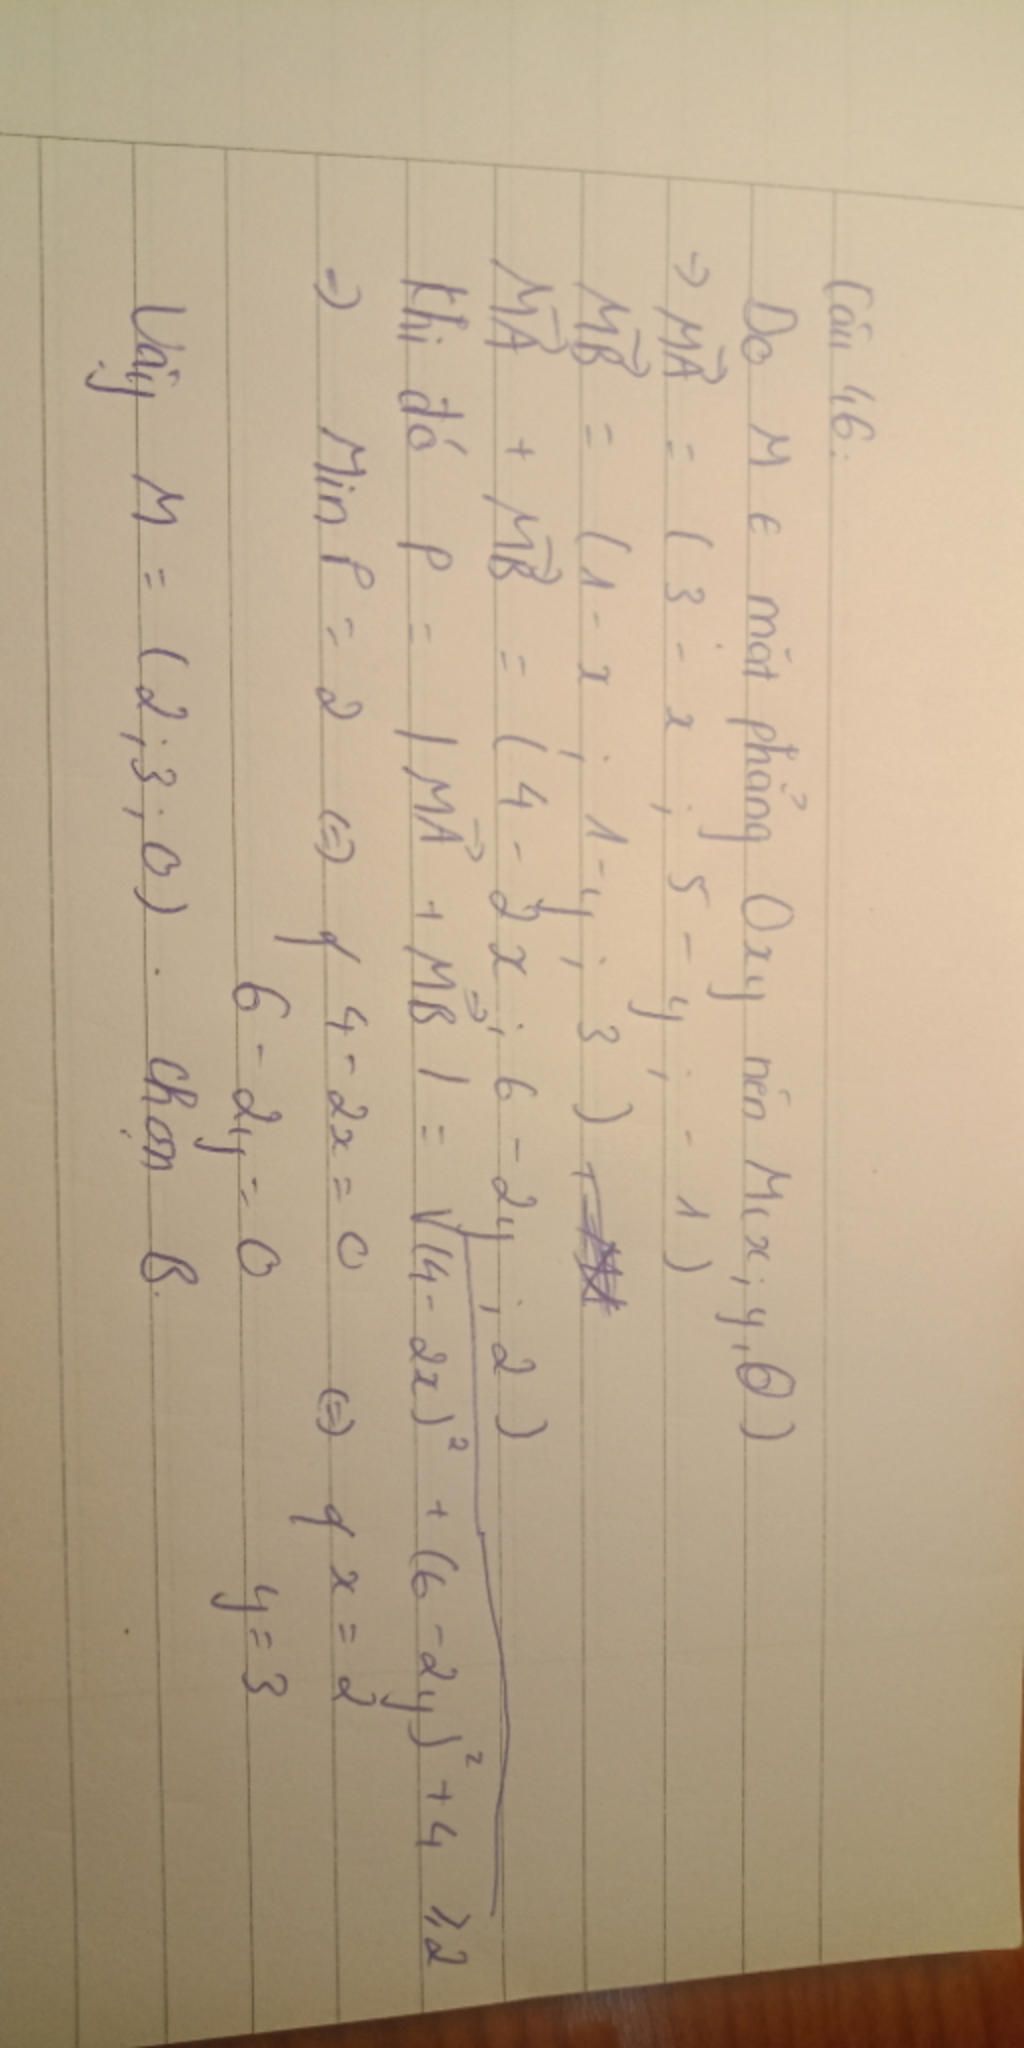 Câu 46:
Do M ∈ mặt phẳng Oxy nên M(x; y, 0)
=> MA→ = (3 - x; 5 - y; -1)
MB→ = (1 - x; 1 - y; 3)
MA→ + MB→ = (4 - 2x; 6 - 2y; 2)
Khi đó P = |MA→ + MB→| = √(4 - 2x)² + (6 - 2y)² + 4 ⩾ 2
=> Min P = 2 (=) { 4 - 2x = 0 (=) { x = 2
6 - 2y = 0 y = 3
Vậy M = (2; 3; 0). Chọn B.